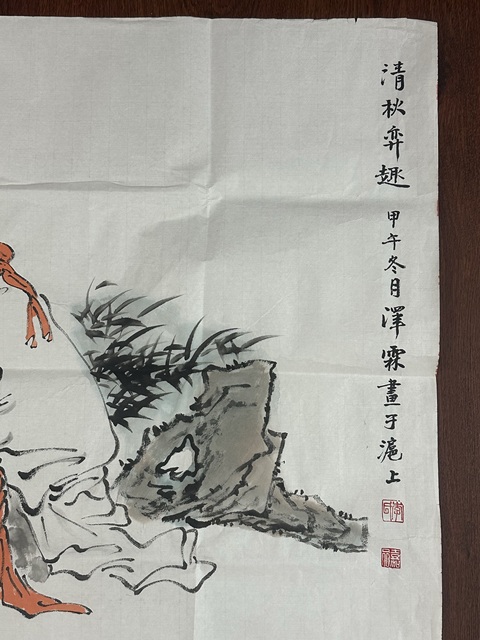 清秋弈趣 甲午冬月澤霖畫于滬上